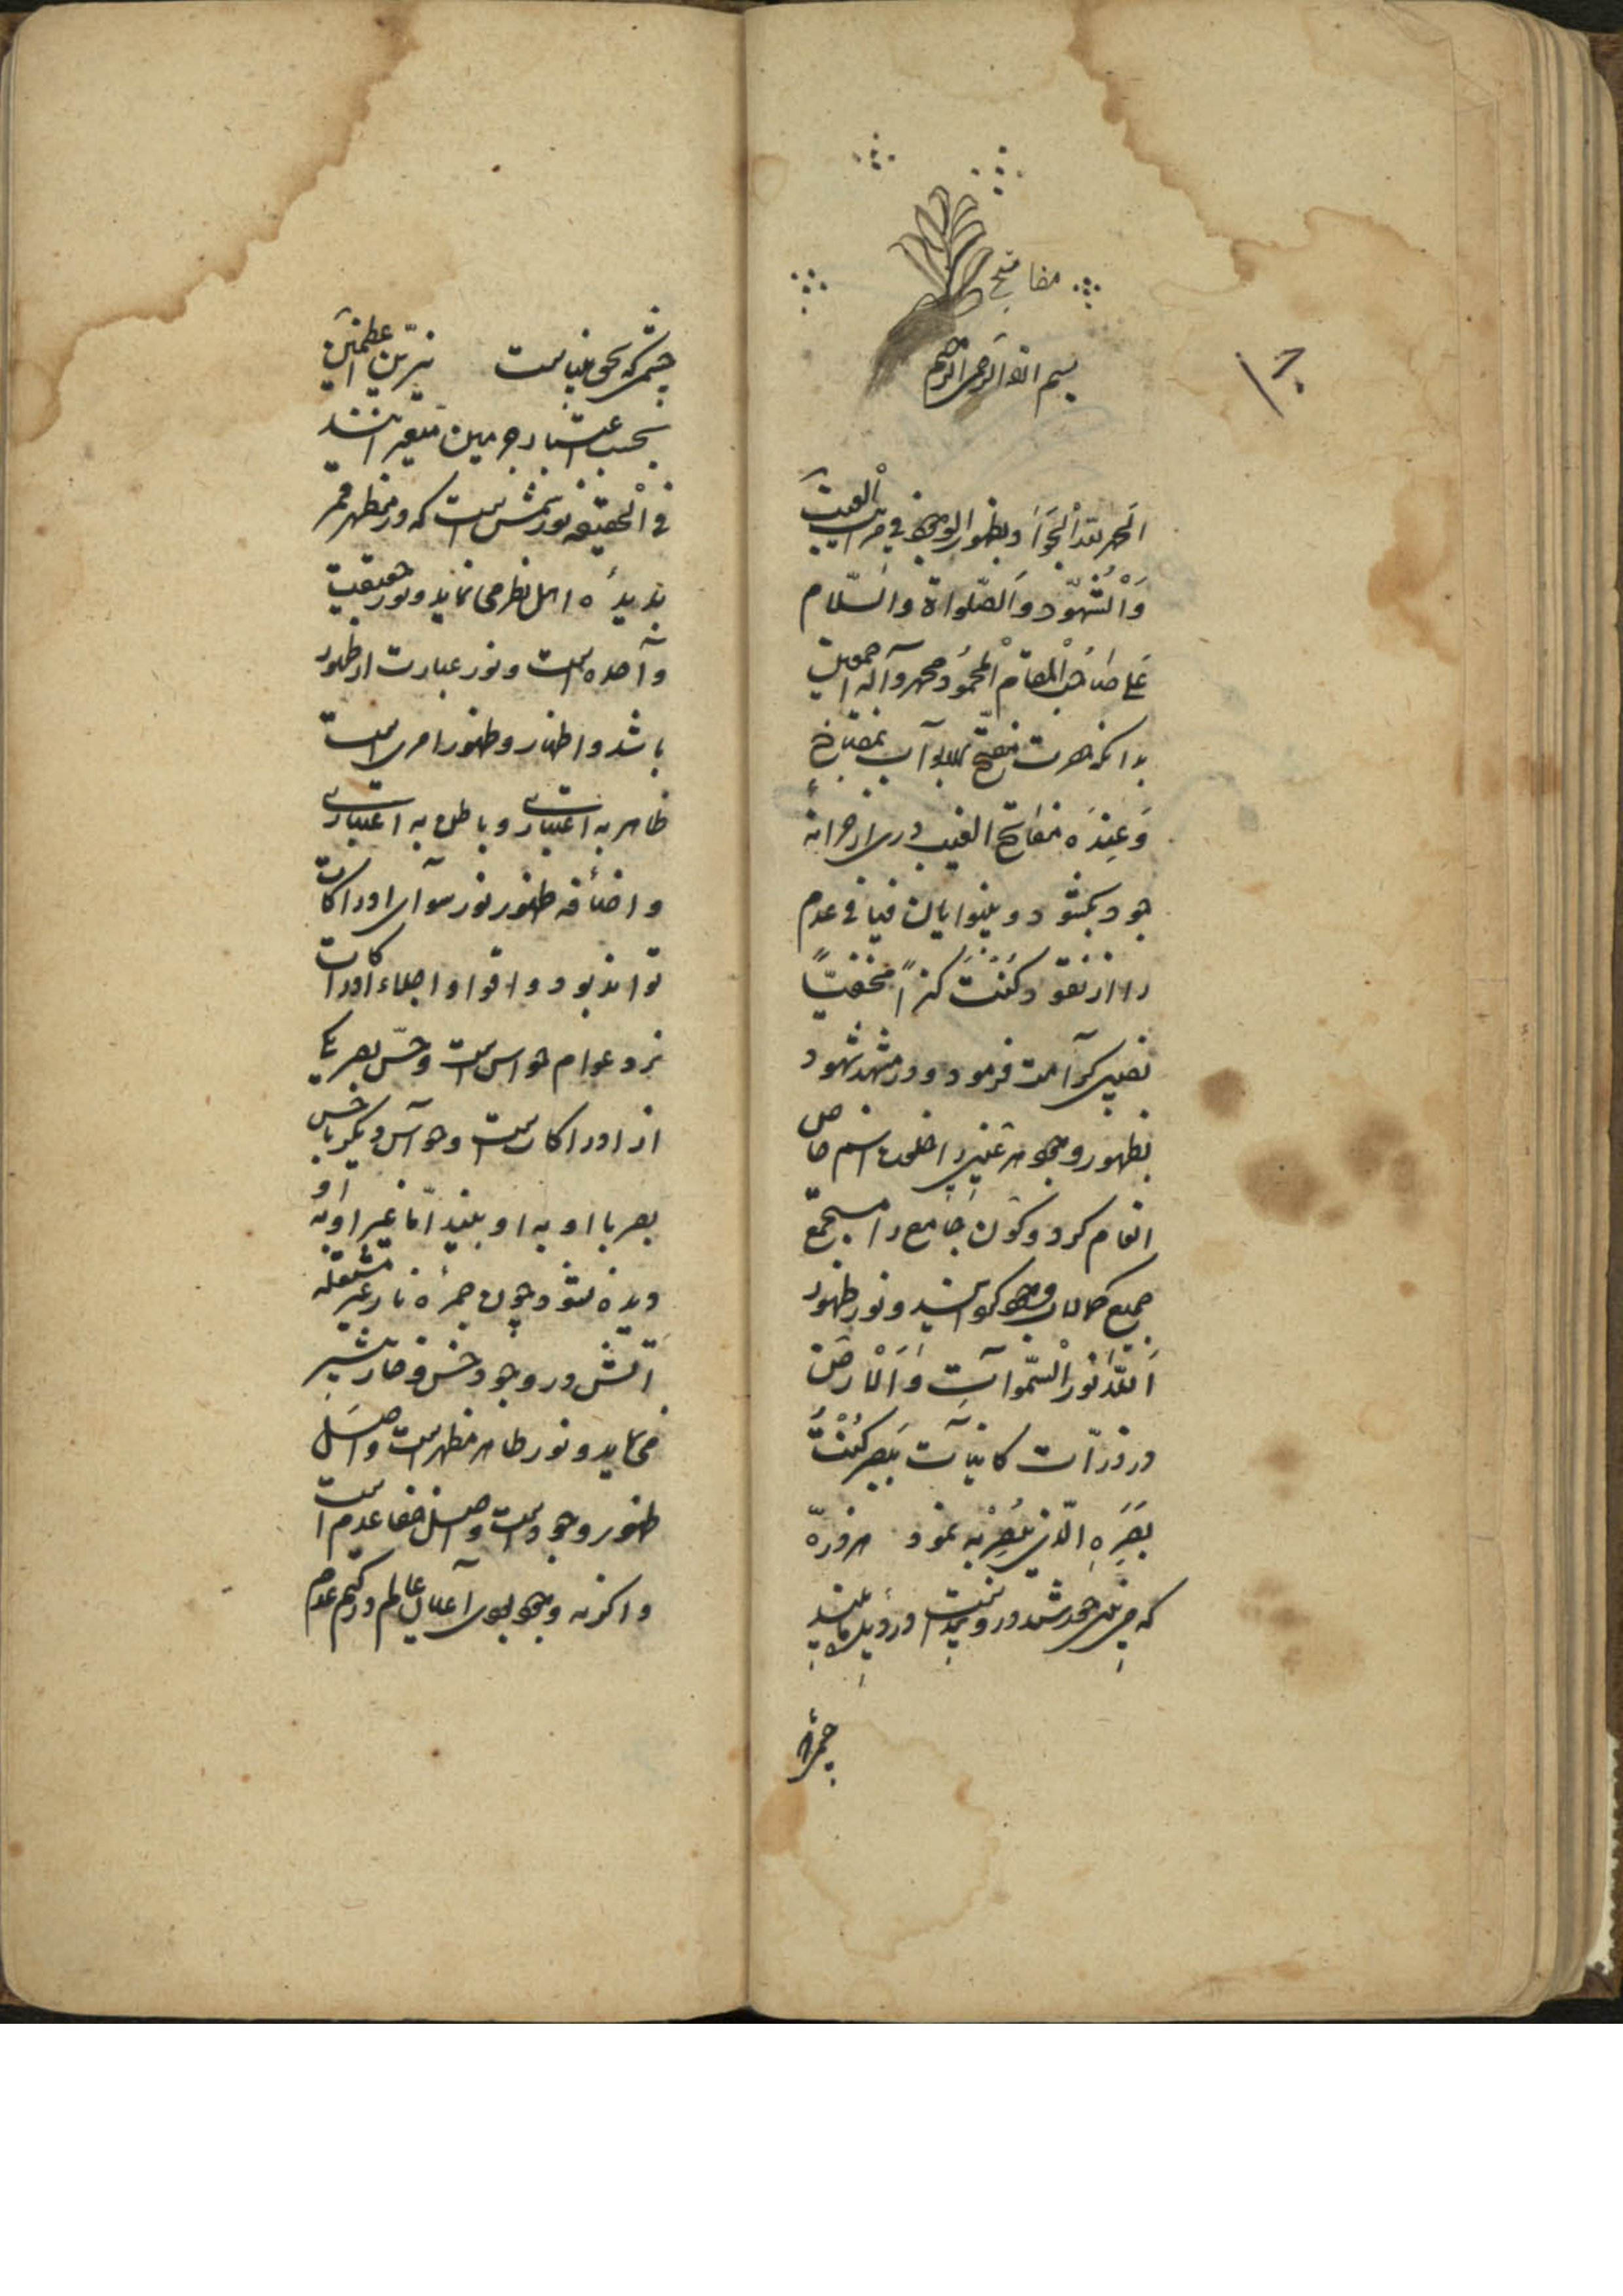 مفاتیح
بسم الله الرحمن الرحیم
الحمد لله الجواد بظهور الوجود فی مراتب الغیب
وَالْشُّهود وَالصّلواة والسّلام
عَلی صَاحب الْمقام الْمحمُود محمد وآله اجمعین
بدانکه حضرت مفتّح الابوآب بمفتاح
وَعِندَه مفاتح الغیب دری از خزانهٔ
جود بکشود و بینوایان فیافی عدم
را از نقود کُنْتُ کنزاً مخفیّاً
نصیبی کرآمت فرمود و در مشهد شهود
بظهور وجود هر عینی را خلعت اسم خاص
انعام کرد و کَون جَامع را مستجمع
جمیع کمالات وجود گردانید و نور ظهور
اَللهُ نُورُ الْسّموآتِ وَالْارضْ
در ذرّات کاینآت بَبصر کُنْتُ
بَصَرَهِ الّذی یُبْصِرُ بِه نمود هر ذرّه
که
چشم
چشمی که بحق بیناست نیّرین اعظمین
بحسب اعتبار جرمین متغیراتند
فی الْحقیقه نور شمس است که در مظهر قمر
بدیدهٔ اهل نظر می نماید و نور حقیقت
وآحده است و نور عبارت از ظهور
باشد و اظهار و ظهور امری است
ظاهر به اعتباری و باطن به اعتباری
و اضافه ظهور نور سوآی ادراکات
تواند بود و اقوا و اجلاء ادراکات
نزد عوام حواس است و حسّ بصر یکی
از ادراکات است و حوآس دیگر با حس
بصر با او به او بیند امّا غیر او به او
دیده نشود چون جمرهٔ نار غیر مشتعله
آتش در وجود خس و خار
می نماید و نور ظاهر مظهر است و اصل
ظهور وجود است و اصل خفا عدم است
و اگر نه وجود بودی آعیان عالم در کتم عدم